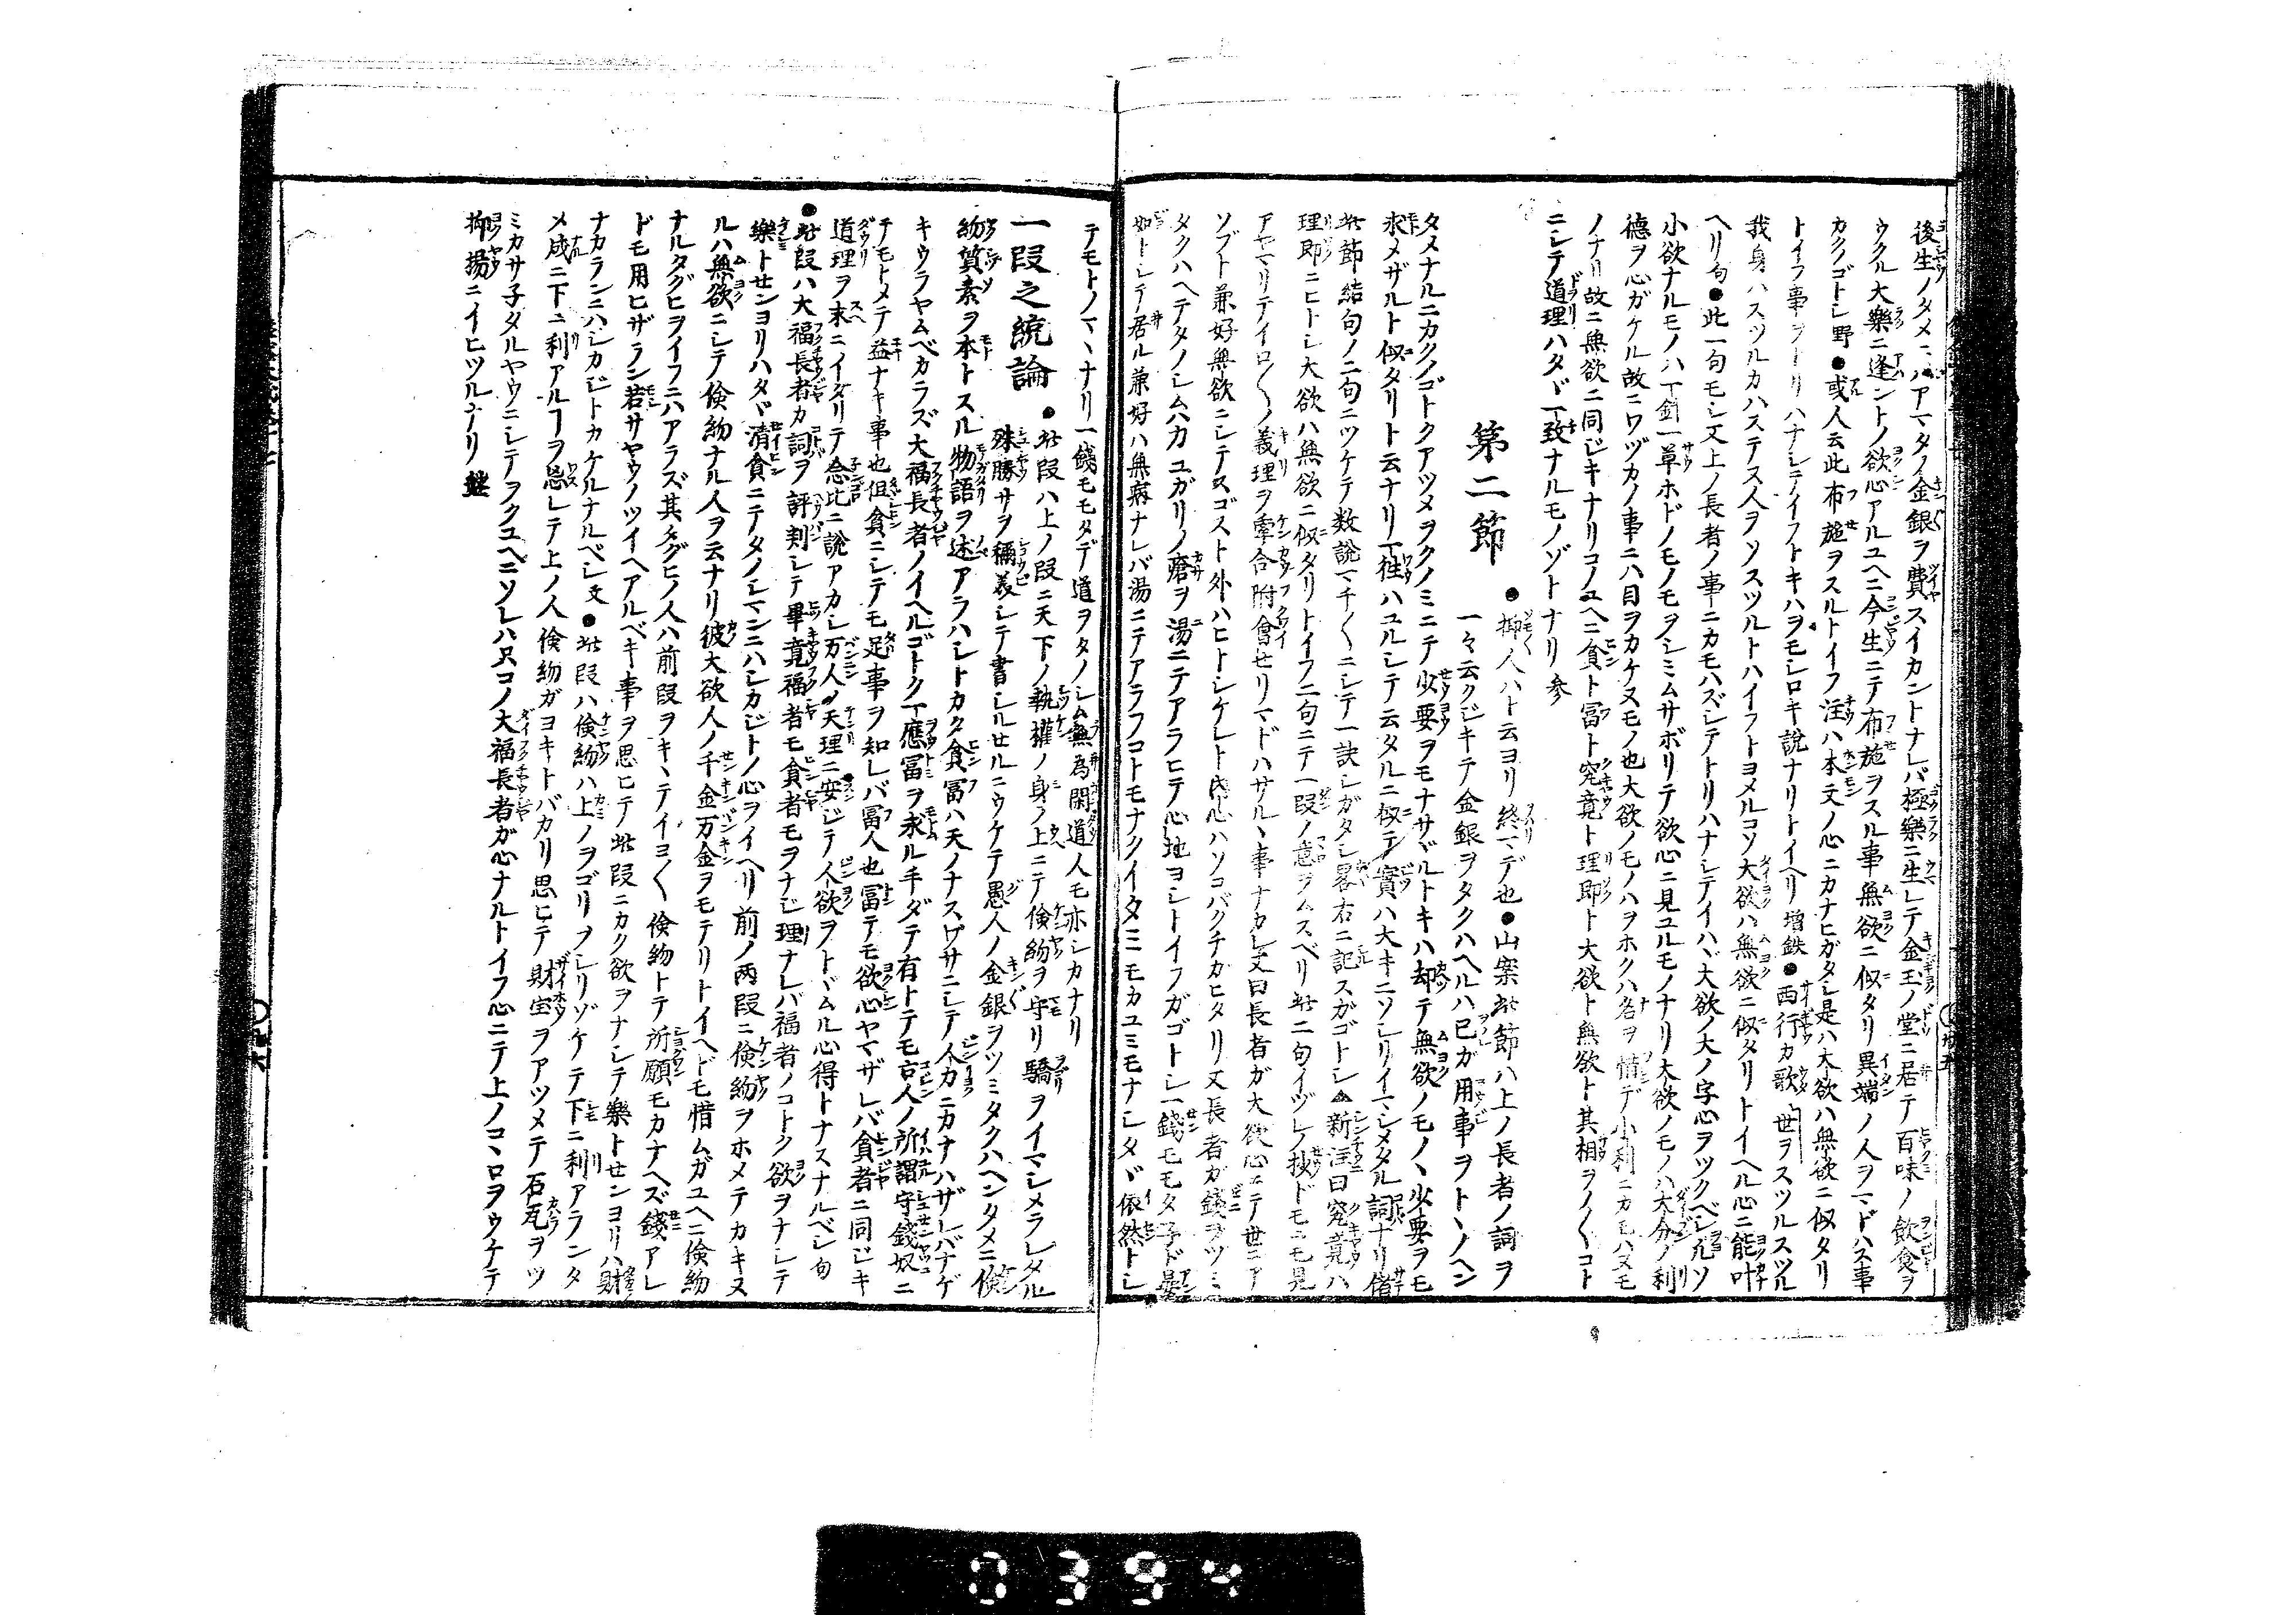 後生ノタメニハアマタノ金銀ヲ費スイカントナレバ極樂ニ生レテ金玉ノ堂ニ居テ百味ノ飲食ヲ
ウクル大樂ニ逢ントノ欲心アルユヘニ今生ニテ布施ヲスル事無欲ニ似タリ異端ノ人ヲマドハス事
カクノゴトシ野●或人云此布施ヲスルトイフ注ハ本文ノ心ニカナヒガタシ是ハ大欲ハ無欲ニ似タリ
トイフ事ヲトリハナシテイフトキハヲモシロキ說ナリトイヘリ増鉄●西行カ歌世ヲスツルスツル
我身ハスツルカハステヌ人ヲソスツルトハイフトヨメルコソ大欲ハ無欲ニ似タリトイヘル心ニ能叶
ヘリ句●此一句モシ又上ノ長者ノ事ニカモハズシテトリハナシテイハヾ大欲ノ大ノ字心ヲツクベシ凡ソ
小欲ナルモノハ一針一草ホドノモノモヲシミムサボリテ欲心ニ見ユルモノナリ大欲ノモノハ大分ノ利
德ヲ心ガケル故ニワヅカノ事ニハ目ヲカケヌモノ也大欲ノモノハヲホクハ名ヲ惜デ小利ニカモハヌモ
ノナリ故ニ無欲ニ同ジキナリコノユヘニ貪ト冨ト究竟ト理即ト大欲ト無欲ト其相ヲノ〱コト
ニシテ道理ハタヾ一致ナルモノゾトナリ参
第二節
●抑人ハト云ヨリ終マデ也●山案此節ハ上ノ長者ノ詞ヲ
一々云クジキテ金銀ヲタクハヘルハ已ガ用事ヲトヽノヘン
タメナルニカクノゴトクアツメヲクノミニテ少要ヲモナサヾルトキハ却テ無欲ノモノヽ少要ヲモ
求メザルト似タリト云ナリ一往ハユルシテ云タルニ似テ實ハ大キニソレリイマシメタル詞ナリ偖
此節結句ノ二句ニツケテ数說マチ〱ニシテ一決シガタシ畧右ニ記スガゴトシ▲新注曰究竟ハ
理即ニヒトシ大欲ハ無欲ニ似タリトイフ二句ニテ一段ノ意ヲムスベリ此二句イヅレノ抄ドモニモ見
アヤマリテイロ〱ノ義理ヲ牽合附會セリマドハサルヽ事ナカレ又曰長者が大欲心ニテ世ニア
ソブト兼好無欲ニシテスゴスト外ハヒトシケレト内心ハソコバクチカヒタリ又長者ガ錢ヲツミ
タクハヘテタノシムハカユガリノ瘡ヲ湯ニテアラヒテ心地ヨシトイフガゴトシ一錢モモタ子ド晏
如トシテ居ル兼好ハ無病ナレバ湯ニテアラフコトモナクイタミモカユミモナシタヾ依然トシ
テモトノマヽナリ一錢モモタデ道ヲタノシム無為閑道人モ亦シカナリ
一段之統論
●此段ハ上ノ段ニ天下ノ執權ノ身ノ上ニテ倹約ヲ守リ驕ヲイマシメラレタル
殊勝サヲ稱義シテ書シルセルニウケテ愚人ノ金銀ヲツミタクハヘンタメニ倹
約質素ヲ本トスル物語ヲ述アラハシトカク貪冨ハ天ノナスワサニシテ人カニカナハザレバナゲ
キウラヤムベカラズ大福長者ノイヘルゴトク一應冨ヲ求ル手ダテ有トテモ古人ノ所謂守錢奴ニ
テモトメテ益ナキ事也但貪ニシテモ足事ヲ知レバ冨人也冨テモ欲心ヤマザレバ貪者ニ同ジキ
道理ヲ末ニイタリテ念比ニ說アカシ万人ノ天理ニ安ジテ人欲ヲトヾムル心得トナスナルベシ句
●此段ハ大福長者カ詞ヲ評判シテ畢竟福者モ貪者モヲナジ理ナレバ福者ノコトク欲ヲナシテ
樂トセンヨリハタヾ清貪ニテタノシマンニハシカジトノ心ヲイヘリ前ノ両段ニ倹約ヲホメテカキヌ
ルハ無欲ニシテ倹約ナル人ヲ云ナリ彼大欲人ノ千金万金ヲモテリトイヘドモ惜ムガユヘニ倹約
ナルタグヒヲイフニハアラズ其タグヒノ人ハ前段ヲキヽテイヨ〱倹約トテ所願モカナヘズ錢アレ
ドモ用ヒザラン若サヤウノツイヘアルベキ事ヲ思ヒテ此段ニカク欲ヲナシテ樂トセンヨリハ財
ナカランニハシカジトカケルナルベシ文●此段ハ倹約ハ上ノヲゴリヲシリゾケテ下ニ利アランタ
メ成ニ下ニ利アルヿヲ忘レテ上ノ人倹約ガヨキトバカリ思ヒテ財宝ヲアツメテ石瓦ヲツ
ミカサ子タルヤウニシテヲクユヘニソレハ只コノ大福長者ガ心ナルトイフ心ニテ上ノコヽロヲウケテ
抑揚ニイヒツルナリ盤
0394